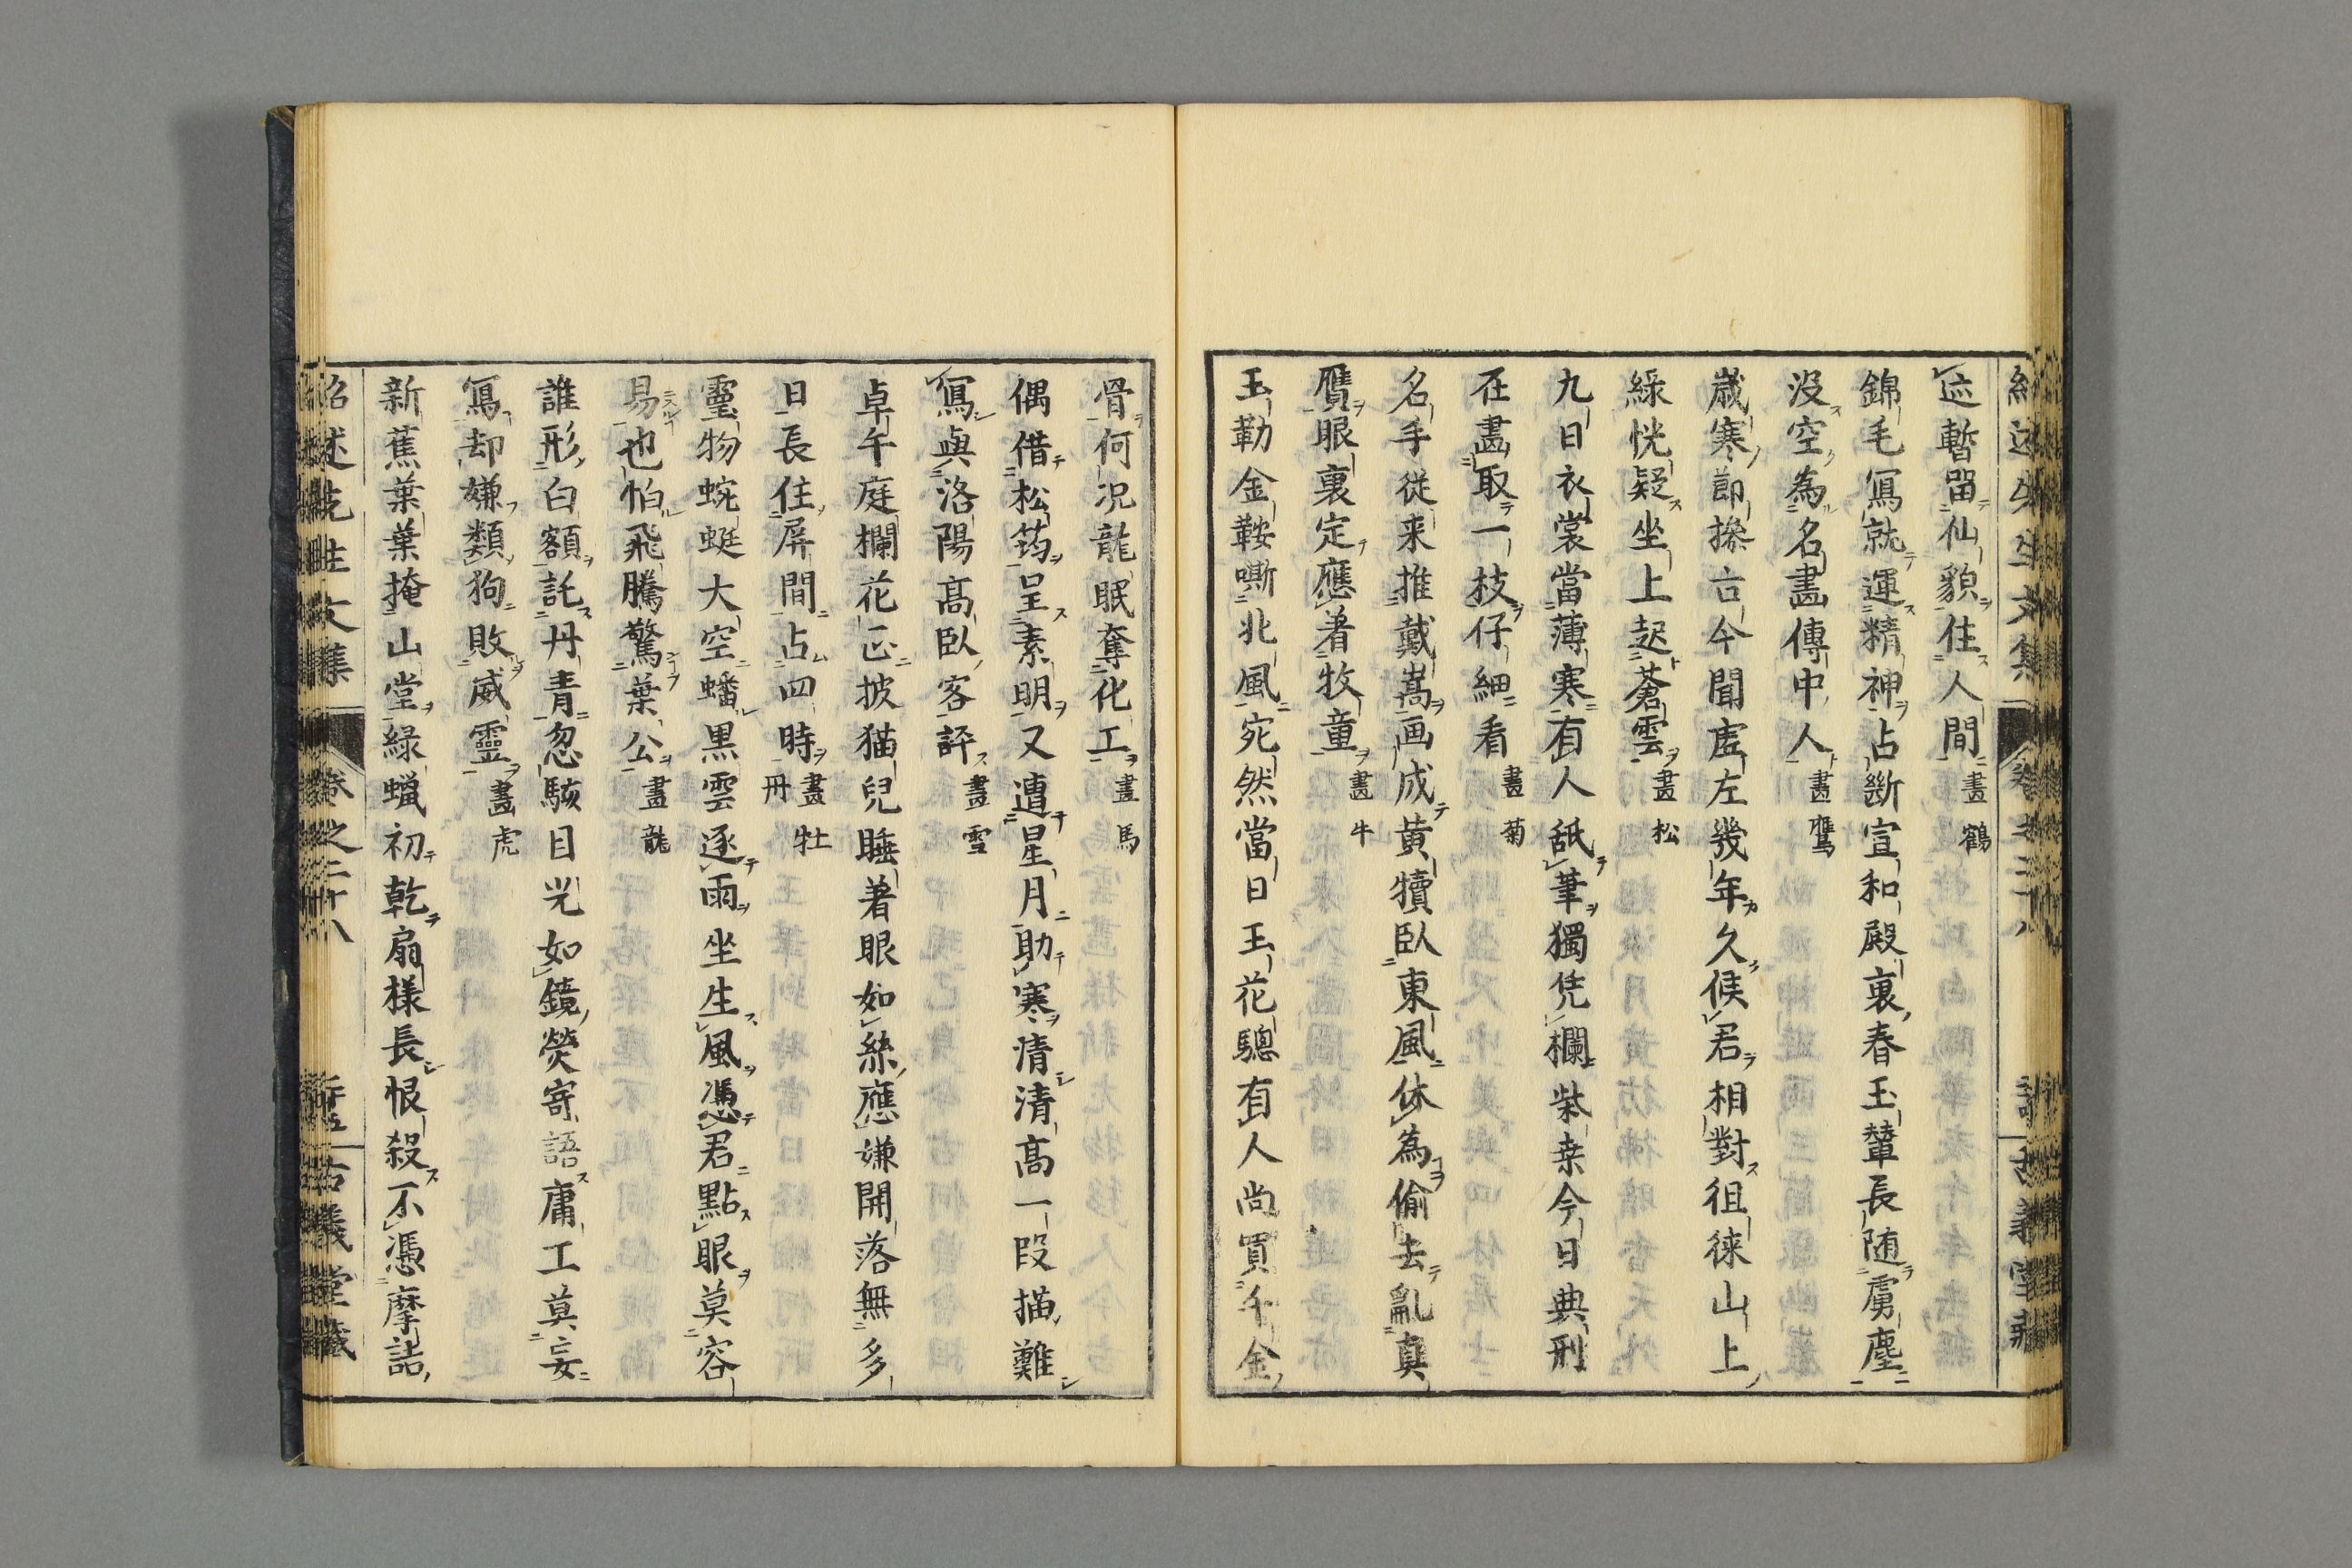 迹暫留仙貌住人間畫鶴
錦毛寫就運精神占斷宣和殿裏春玉輦長随虜塵
没空為名畫傳中人畫鷹
歳寒節操古今聞虗左幾年久候君相對徂徠山上
緑恍疑坐上起蒼雲畫松
九日衣裳當薄寒有人舐筆獨凭欄柴桒今日典刑
在畫取一枝仔細看畫菊
名手從来推戴嵩画成黄犢臥東風休為偷去亂真
贋眼裏定應着牧童畫牛
玉勒金鞍嘶北風宛然當日玉花驄有人尚買千金
骨何况龍眠奪化工畫馬
偶借松筠呈素明又遭星月助寒清清高一段描難
寫與洛陽高臥客評畫雪
卓午庭欄花正披猫兒睡著眼如絲應嫌開落無多
日長住屏間占四時畫牡丹
靈物蜿蜒大空蟠黒雲逐雨坐生風憑君點眼莫容
易也怕飛騰驚葉公畫龍
誰形白額託丹青忽駭目光如鏡熒寄語庸工莫妄
寫却嫌類狗敗威靈畫虎
新蕉葉葉掩山堂緑蝋初乾扇樣長恨殺不憑摩詰
紹述先生文集 卷之二十八 古義堂藏